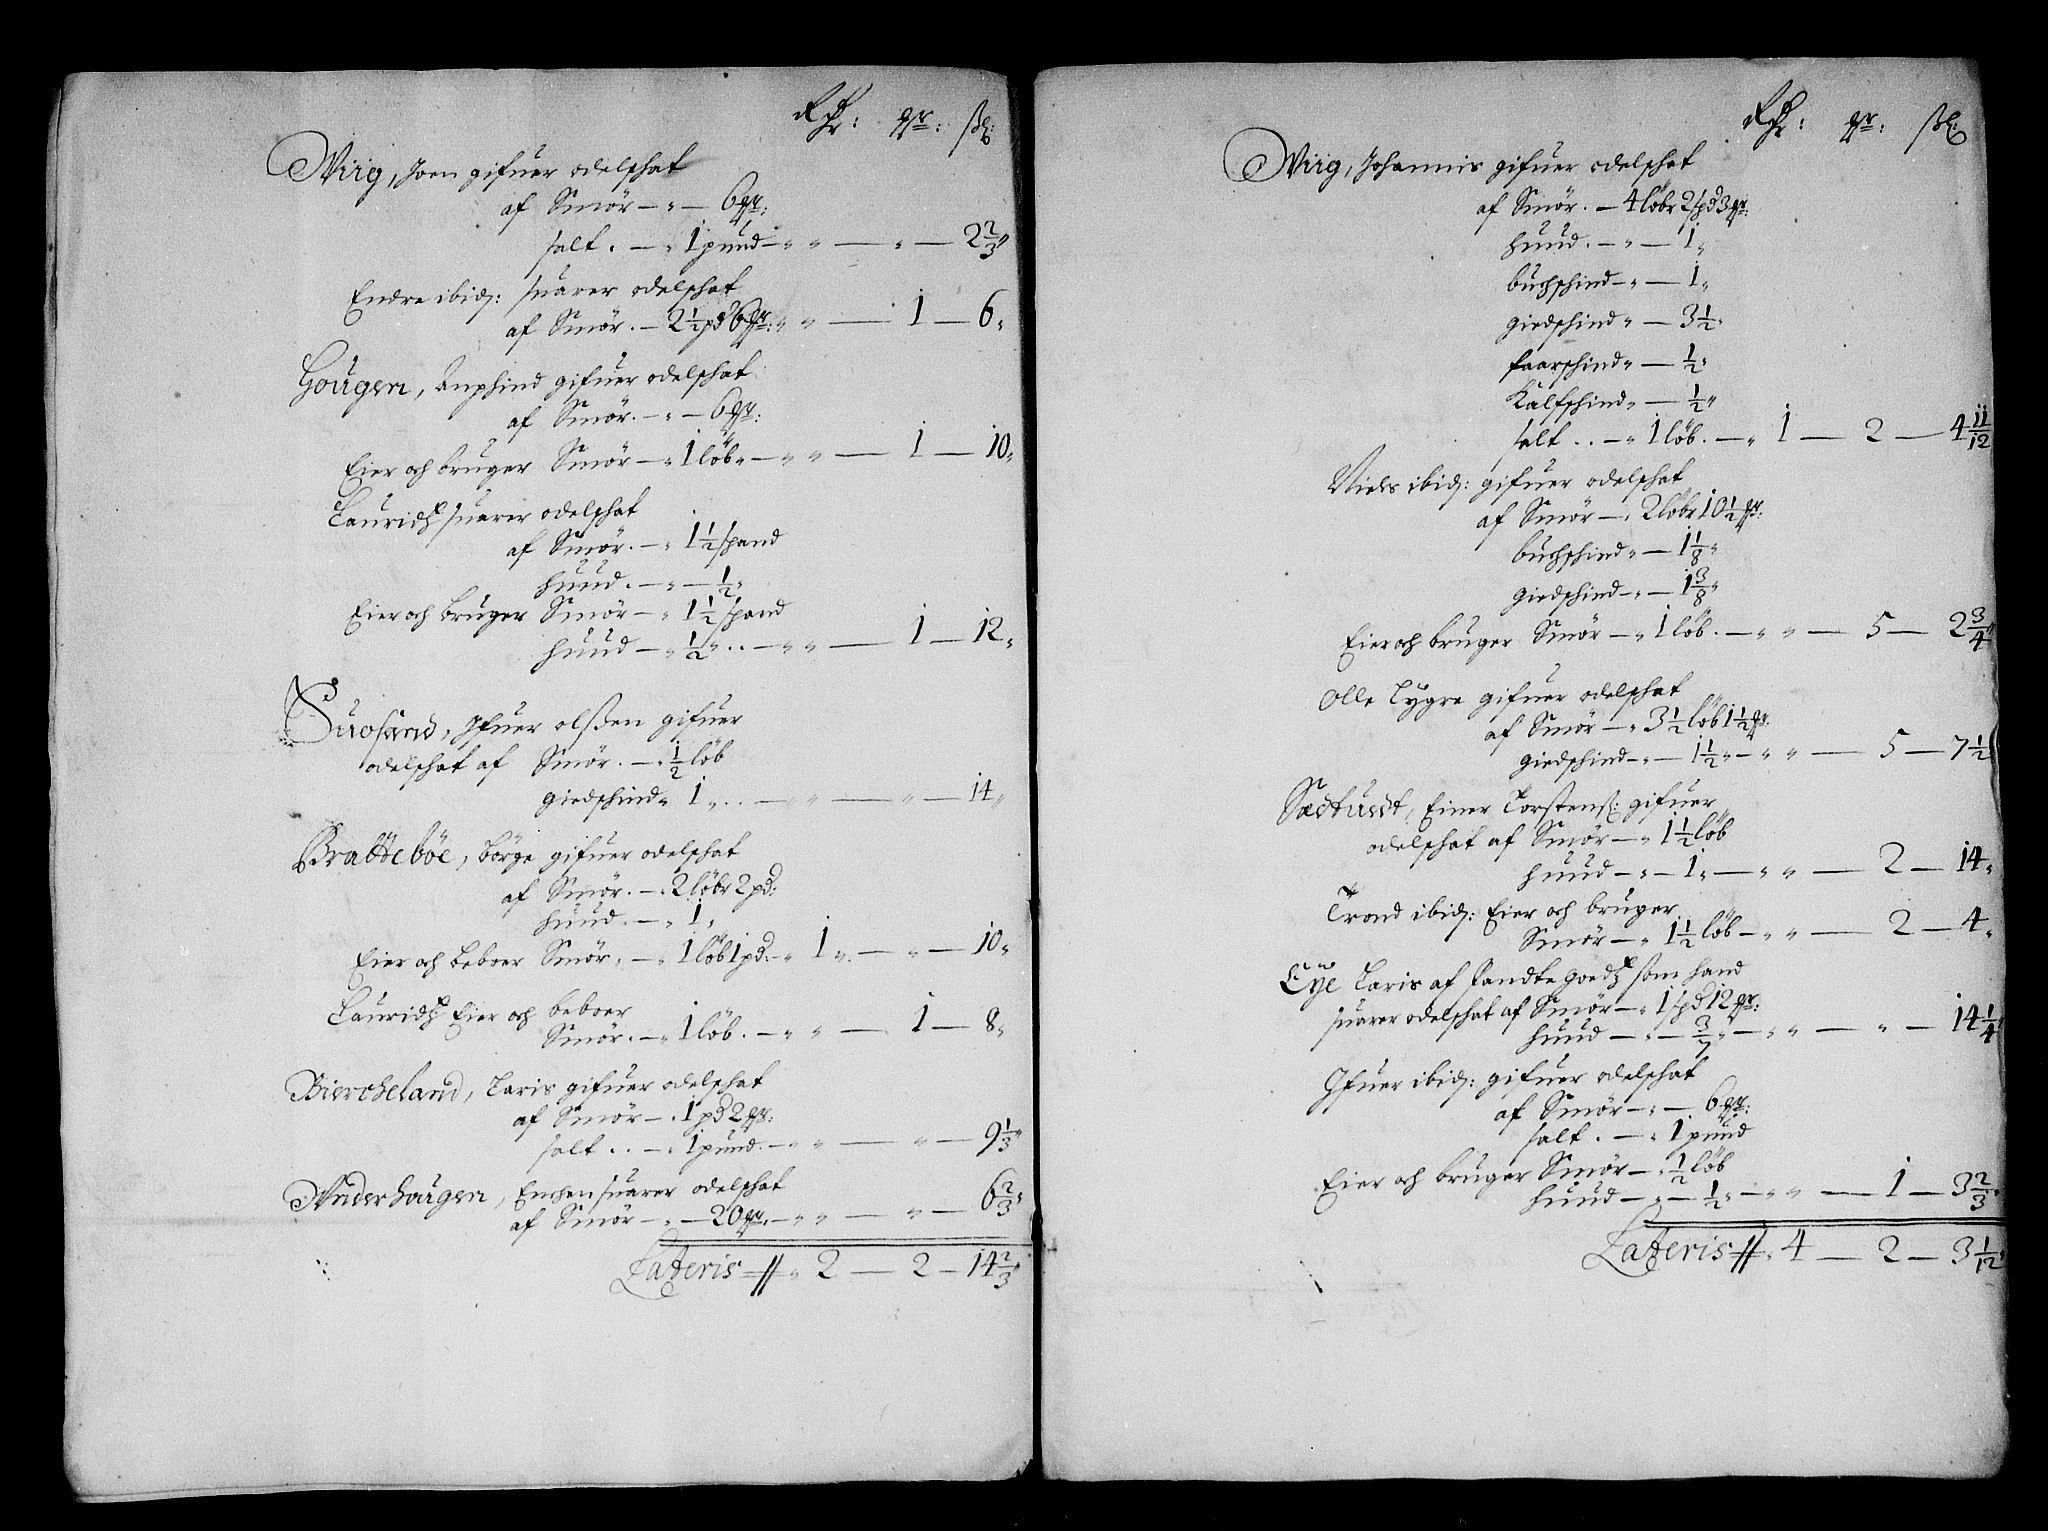 Rdr: qr: ßl:
Wiig, Joen gifuer odelschat
af Smör — " — 6 qr:
salt. — " 1 pund — " " — " — 2 2/3 "
Endre ibid: suarer odelschat
af Smör. — 2 1/2 pd 6 qr: " " — 1 — 6 "
Hougen, Anphind gifuer odelschat
af Smör. — " — 6 qr:
Eier och bruger Smör — " 1 löb " — " " — 1 — 10 "
Lauridz suarer odelschat
af Smör. — " 1 1/2 spand
huud. — " — 1/2 "
Eier och bruger Smör — " 1 1/2 spand
huud — " 1/2 " .. — " " — 1 — 12 "
Suosand, Ifuer olßen gifuer
odelschat af Smör. — " 1/2 löb
giedschind " 1 " .. — " " — " — 14 "
Bratteböe, börge gifuer odelschat
af Smör. — " 2 löbr 2 pd:
huud. — " 1 "
Eier och beboer Smör. — " 1 löb 1 pd. — " 1 " — " — 10 "
Lauridz Eier och beboer
Smör. — " 1 löb. — " " — 1 — 8 "
Biercheland, Laris gifuer odelschat
af Smör — . 1 pd 2 qr:
salt .. — " 1 pund. — " " — " — 9 1/3 "
Underhougen, suarer odelschat
af Smör — " — 20 qr. — " " — " — 6 2/3 "
Lateris // " 2 — 2 — 14 2/3 "
Rdr: qr: ßl:
Wiig, Johannis gifuer odelschat
af Smör. — 4 löbr 2 spd 3 qr:
huud. — " — 1 "
buchschind — " — 1 "
giedschind " — 3 1/2 "
faarschind " — 1/2 "
Kalfschind " — 1/2 "
salt .. — " 1 löb. — " 1 — 2 — 4 11/12
Niels ibid: gifuer odelschat
af Smör — " 2 löbr 10 1/2 qr:
buchschind " — 1 1/8 "
giedschind — " — 1 3/8 "
Eier och bruger Smör — " 1 löb. — " " — 5 — 2 3/4 "
Olle Lygre gifuer odelschat
af Smör — " 3 1/2 löb 1 1/2 qr.
giedschind — " — 1 1/2 " — " " — 5 — 7 1/2
Sædtuedt, Einer Torstenß: gifuer
odelschat af Smör — " 1 1/2 löb
huud — " — 1 " — " " — 2 — 14 "
Trond ibid: Eier och bruger
Smör — " 1 1/2 löb — " " — 2 — 4 "
Eye Laris af godz som hand
suarer odelschat af Smör — " 1 spd 12 qr:
huud — " — 3/7 " — " " — " — 14 1/4 "
Ifuer ibid: gifuer odelschat
af Smör — " — 6 qr:
salt. — " 1 pund
Eier och bruger Smör — " 1/2 löb
huud — " — 1/2 " — " " — 1 — 3 2/3 "
Lateris // " 4 — 2 — 3 1/12 "